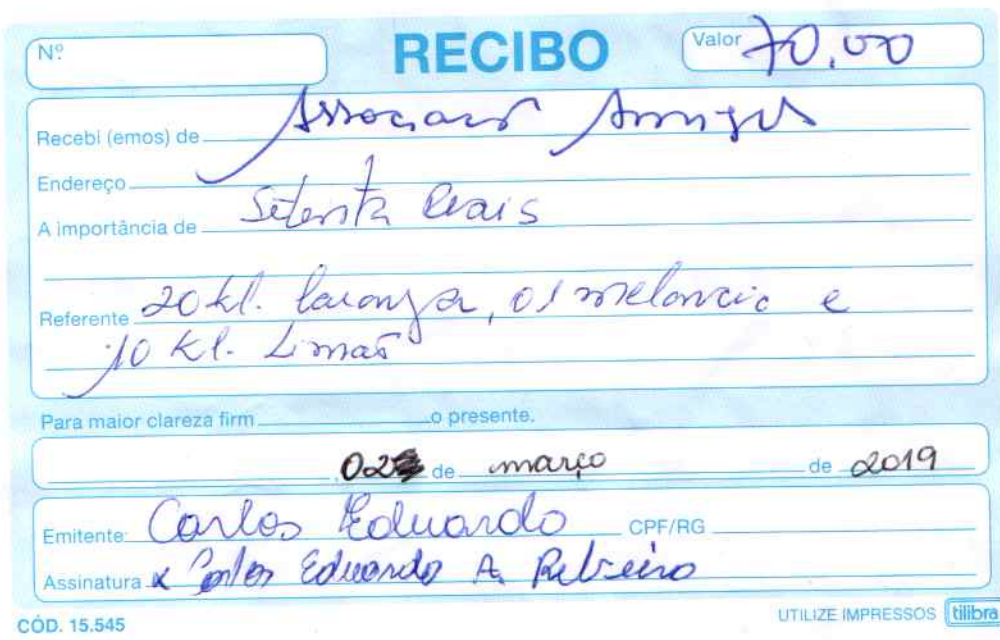 Nº RECIBO Valor 70,00
Recebi (emos) de Associaçõ Amigos
Endereço
A importância de Setenta Reais
Referente 20 kl. laranja, 01 melancia e
10 Kl. Limão
Para maior clareza firm o presente.
02 de março de 2019
Emitente: Carlos Eduardo CPF/RG
Assinatura x Carlos Eduardo A. Ribeiro
CÓD. 15.545 UTILIZE IMPRESSOS tilibra